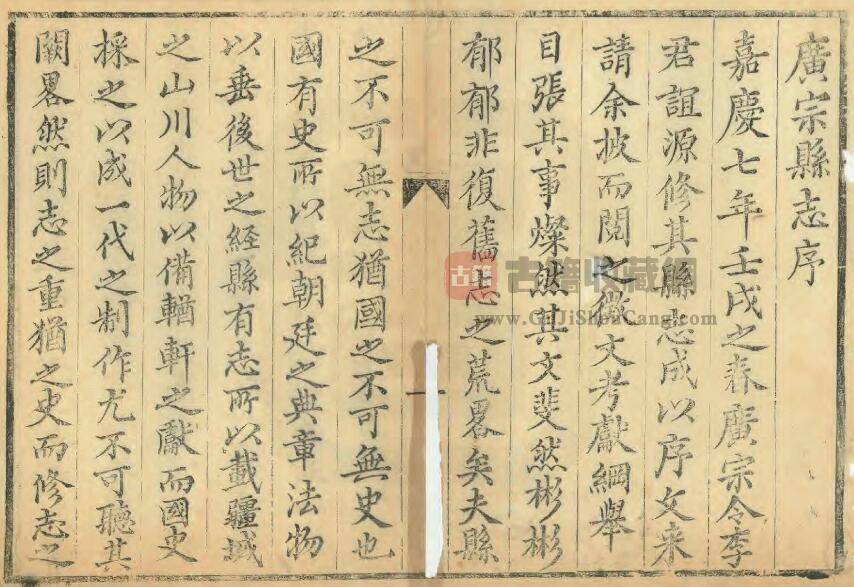 廣宗縣志序
嘉慶七年壬戌之春廣宗令李
君誼源修其縣志成以序文来
請余披而閱之徵文考獻綱舉
目張其事燦然其文斐然彬彬
郁郁非復舊志之荒畧矣夫縣
之不可無志猶國之不可無史也
國有史所以紀朝廷之典章法物
以垂後世之經縣有志所以載疆域
之山川人物以備輶軒之獻而國史
採之以成一代之制作尤不可聽其
闕畧然則志之重猶之史而修志之
一
古籍
古籍收藏網
www.GuJiShouCang.com